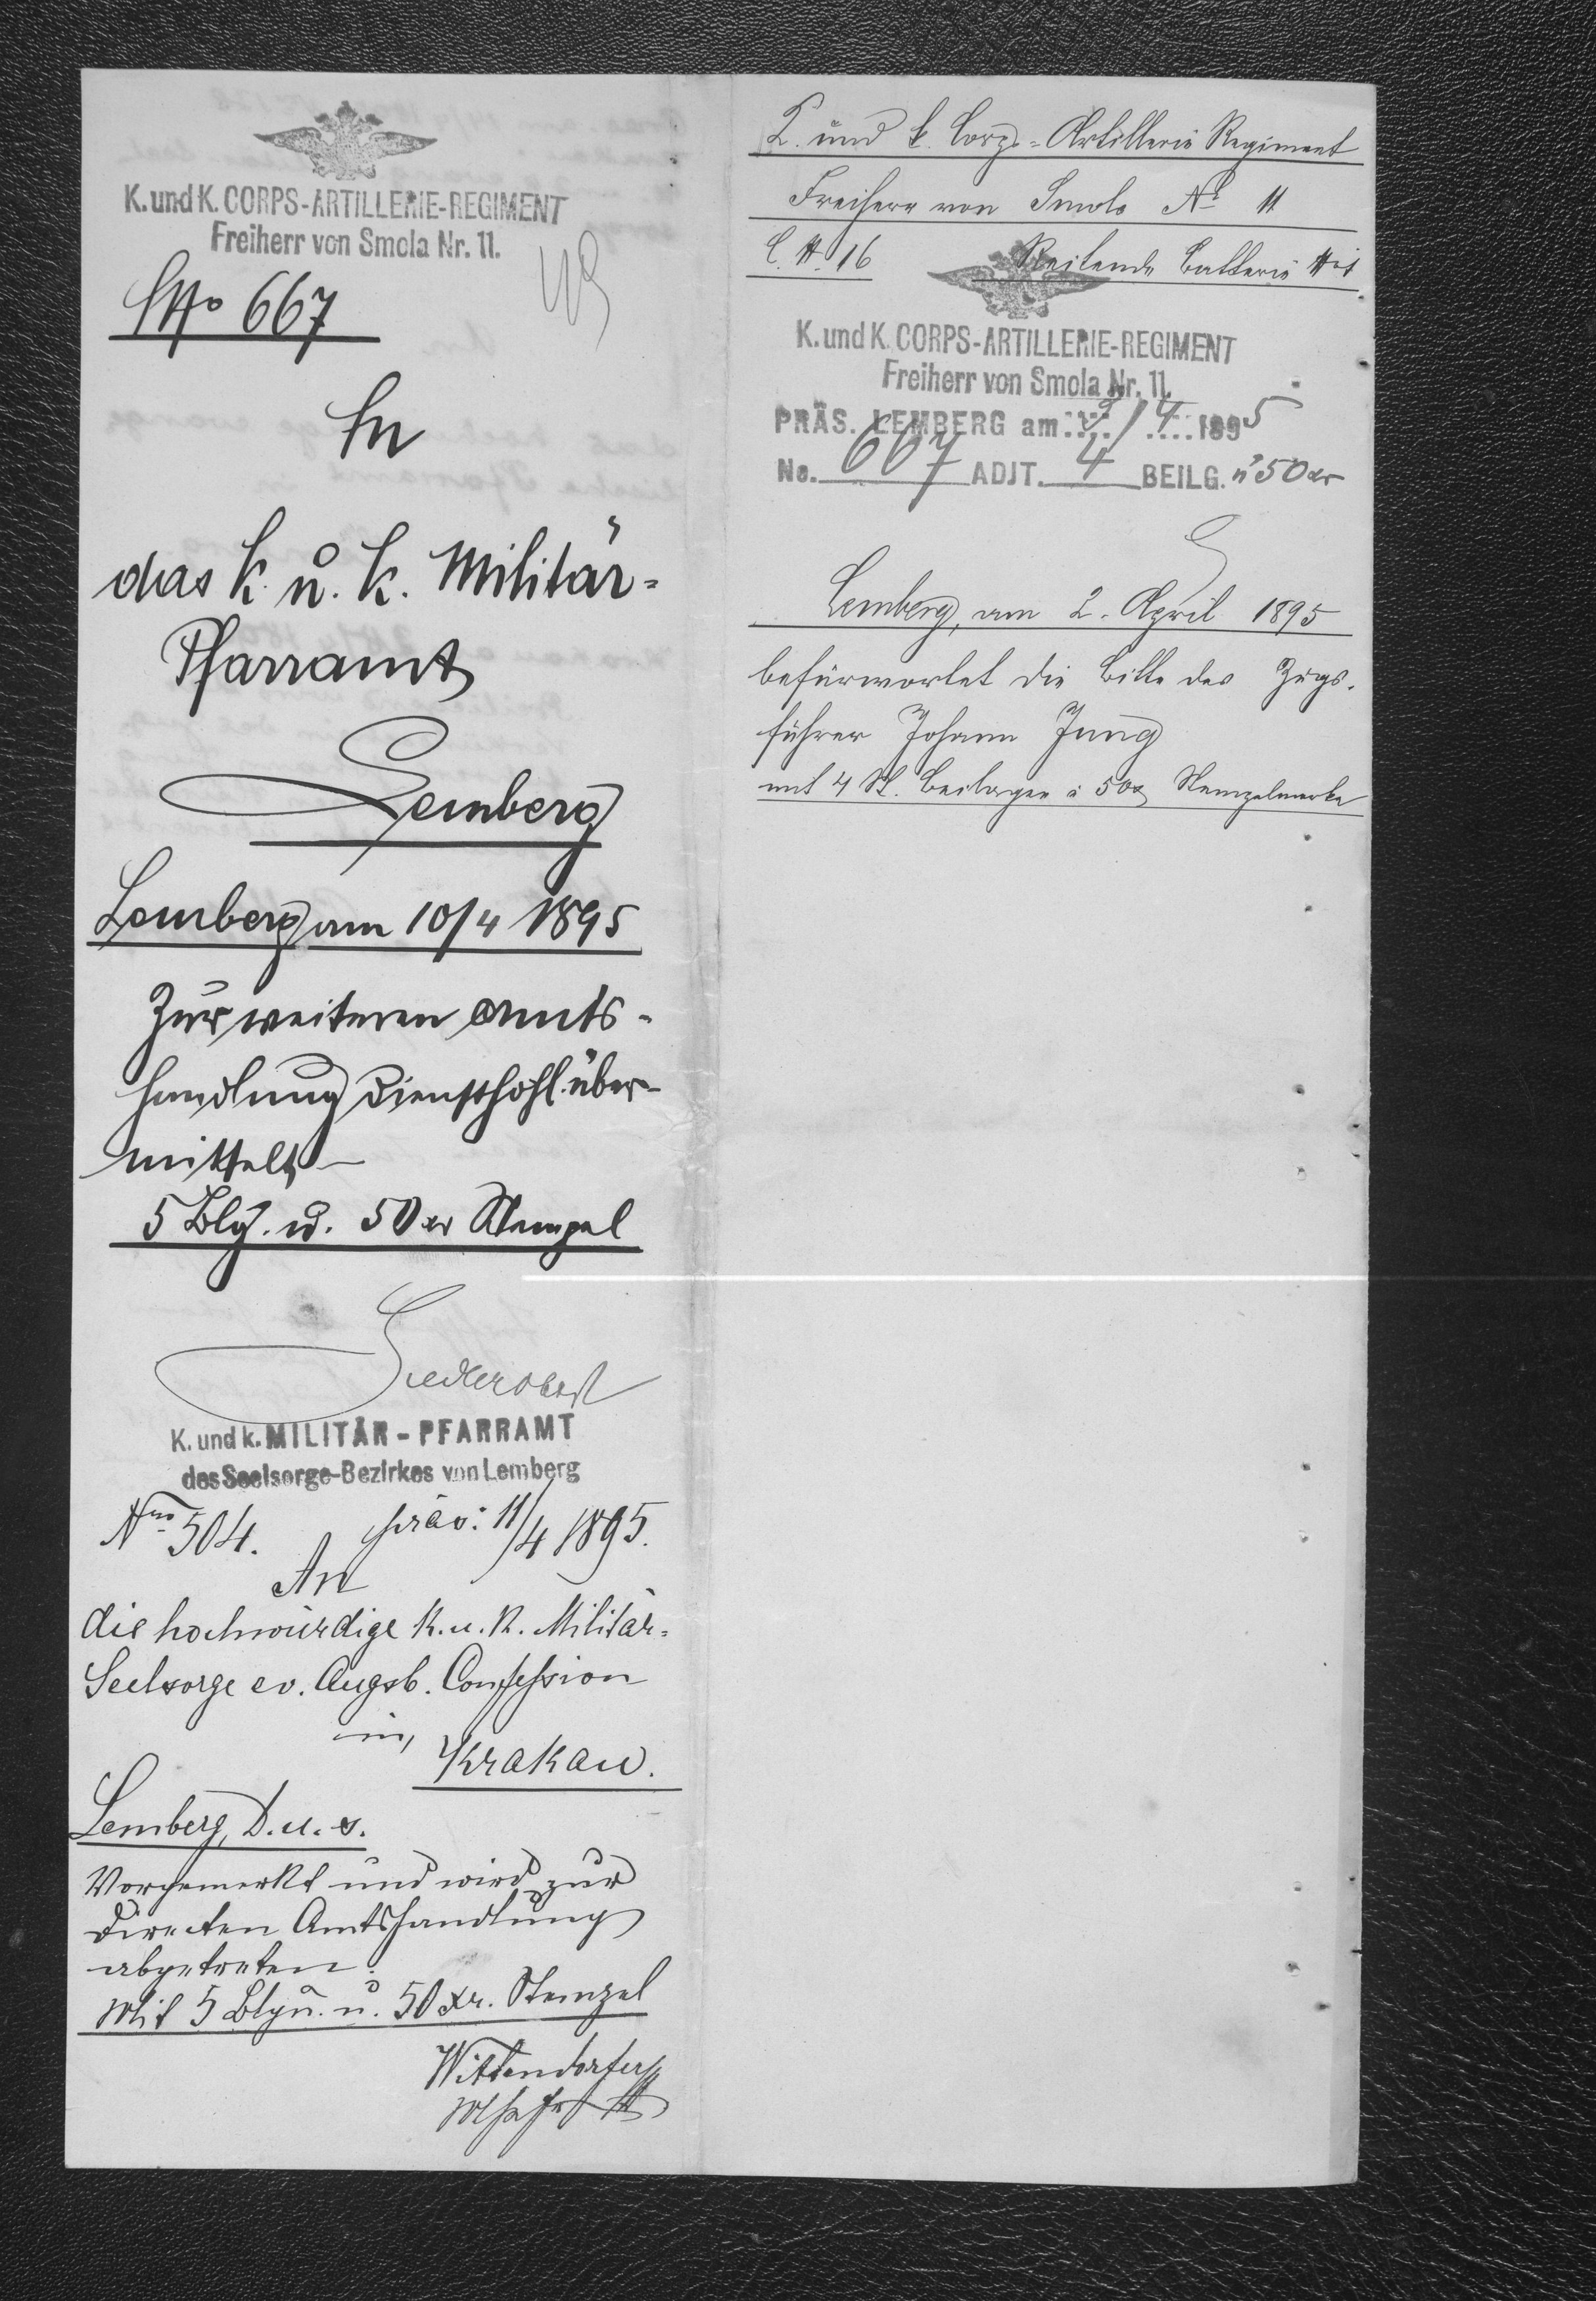 K. und K. CORPS-ARTILLERIE-REGIMENT
Freiherr von Smola Nr. 11.
No 667
An
das k. u. k. Militär-
Pfarramt
Lemberg
Lemberg am 10/4 1895
Zur weiteren Amts-
handlung diensthöfl. über-
mittelt
5 Blg. u. 50 xr Stempel
K. und k. MILITÄR - PFARRAMT
des Seelsorge-Bezirkes von Lemberg
Nro 504. präs: 11/4 1895.
An
die hochwürdige k. u. k. Militär-
Seelsorge ev. Augsb. Confession
in
Krakau.
Lemberg, D. u. s.
Vorgemerkt und wird zur
directen Amtshandlung
abgetreten.
Mit 5 Blgn. u. 50 xr. Stempel
Wittendorfer
K. und k. Corps-Artillerie Regiment
Freiherr von Smola No 11
E. N. 16 Reitende Batterie No 1
K. und K. CORPS-ARTILLERIE-REGIMENT
Freiherr von Smola Nr. 11.
PRÄS. LEMBERG am 3/4 1895
No. 667 ADJT. 4 BEILG. u 50 xr
Lemberg, am 2. April 1895
befürwortet die Bitte des Zugs-
führer Johann Jung
mit 4 St. Beilagen à 50x Stempelmarke